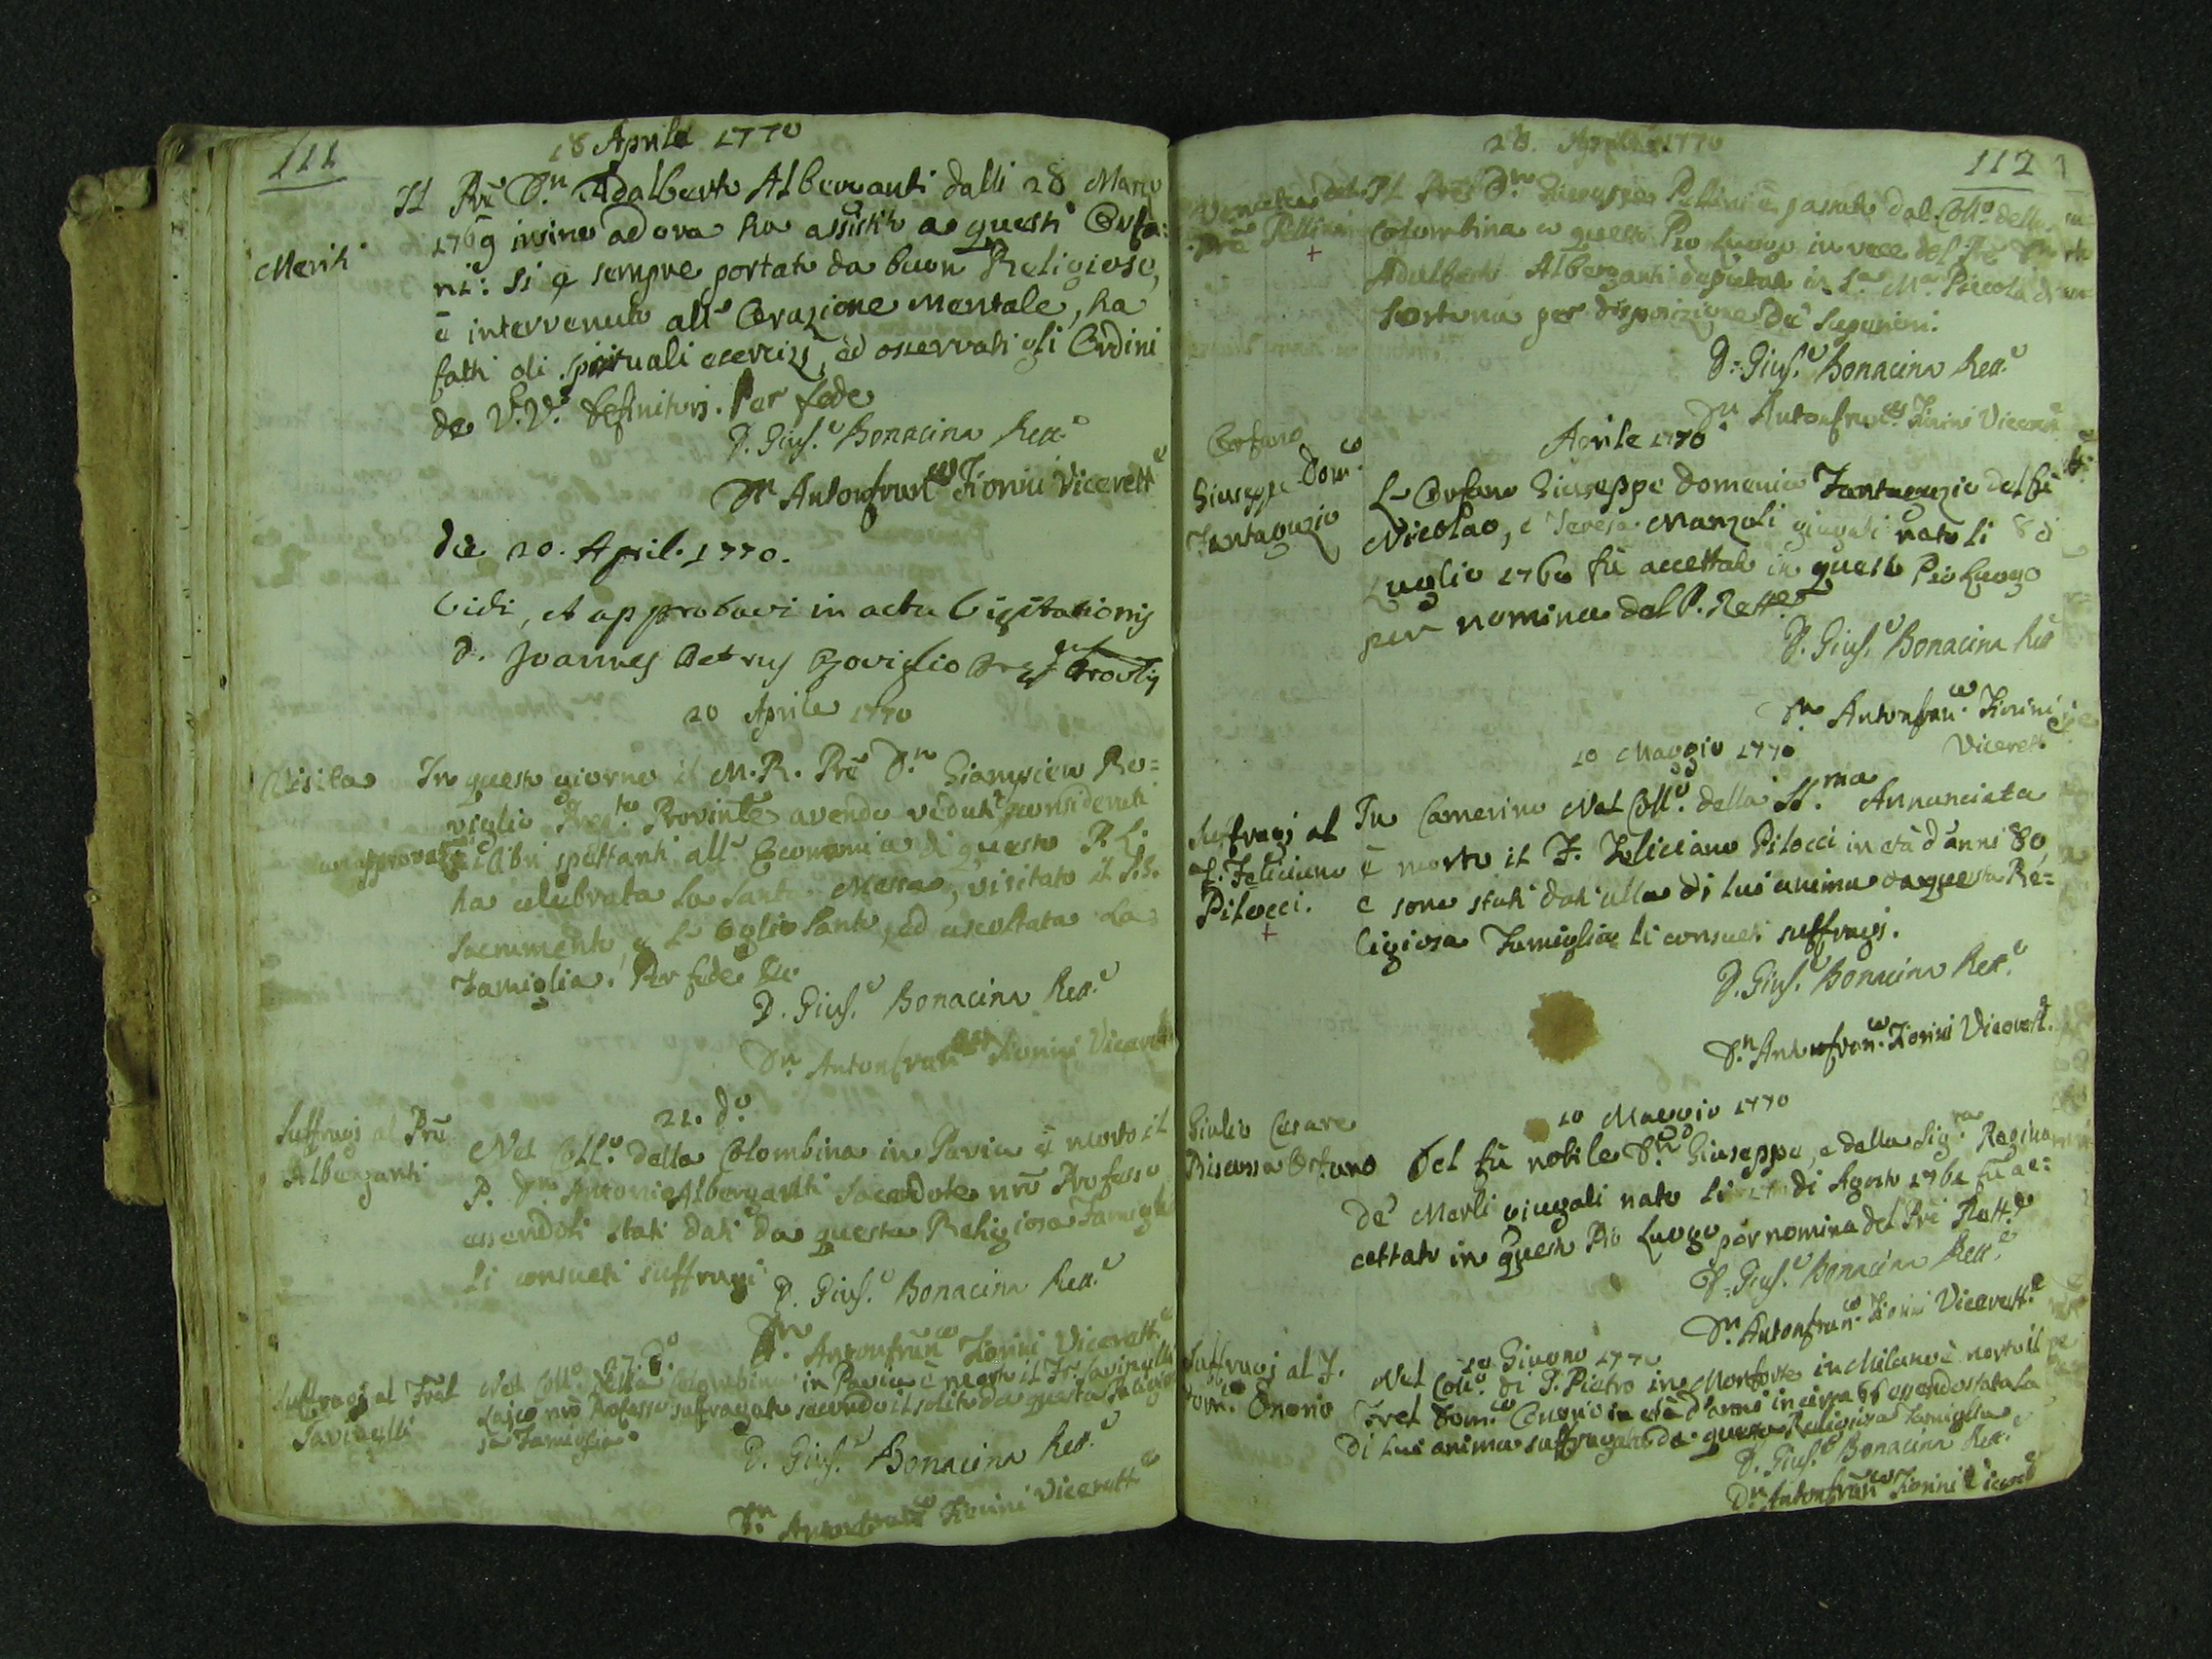 111
18 Aprile 1770
Meriti
Il Prẽ D.n Adalberto Alberzanti dalli 28 Marzo
1769 insino ad ora ha assistito a questi Orfa:
ni: si è sempre portato da buon Religioso,
è intervenuto all' Orazione mentale, ha
fatti gli spirituali esercizj, ed osservati gli Ordini
de V.V. Definitorj. Per fede
D. Gius.e Bonacina Rett.e
D.n Antonfran.co Fiorini Vicerett.e
Die 20. April. 1770.
Vidi, et approbavi in actu Visitationis
D. Joannes Petrus Roviglio
20 Aprile 1770
Visita
In questo giorno il M. R. Prẽ D.n Giampietro Ro=
viglio Provinle avendo veduti, considerati
approvati i libri spettanti all' Economia di questo P. L.
ha celebrata la Santa Messa, visitato il SS.
Sacramento, e l' Oglio Santo, ed ascoltata la
Famiglia. Per fede
D. Gius.e Bonacina Rett.e
D.n Antonfran.co Fiorini Vicerett.e
21. d.o
Suffragj al Prẽ
Alberzanti
Nel Coll.o della Colombina in Pavia è morto il
P. D.n Antonio Alberganti Sacerdote nrõ Professo
essendoli stati dati da questa Religiosa Famiglia
li consueti suffragi
D. Gius.e Bonacina Rett.e
D.n Antonfran.co Fiorini Vicerett.e
27. d.o
Suffragj al Frãl
Savinelli
Nel Coll.o della Colombina in Pavia è morto il Fr. Savinelli
Lajco nrõ Professo suffragato secondo il solito da questa Religio
sa Famiglia
D. Gius.e Bonacina Rett.e
D.n Antonfran.co Fiorini Vicerett.e
112
28. Aprile 1770
Venuta del
Prẽ Pellini
+
Il Prẽ D.n Giuseppe Pellini è passato dal Coll.o della
Colombina a questo Pio Luogo in vece del Prẽ D.n
Adalberto Alberzanti deputato in S.a M.a Piccola di
Tortona per disposizione de' Superiori.
D. Gius.e Bonacina Rett.e
D.n Antonfran.co Fiorini Vicerett.e
Aprile 1770
Orfano
Giuseppe Dom.co
Fantaguzio
L' Orfano Giuseppe Domenico Fantaguzio del fù
Nicolao, e Teresa Manzoli giugali nato li 8 di
Luglio 1760 fù accettato in questo Pio Luogo
per nomina del P. Rett.e
D. Gius.e Bonacina Rett
D.n Antonfran.co Fiorini
Vicerett.e
10 Maggio 1770
Suffragj al
F. Feliciano
Pilocci.
+
In Camerino nel Coll.o della SS.ma Annunciata
è morto il F. Feliciano Pilocci in età d'anni 80,
e sono stati dati alla di lui anima da questa Re=
ligiosa Famiglia li consueti suffragj.
D. Gius.e Bonacina Rett.e
D.n Antonfran.co Fiorini Vicerett.e
10 Maggio 1770
Giulio Cesare
Biscossa Orfano
Del fù nobile D.n Giuseppe, e della Sig.ra Regina
de' Merli giugali nato li di Agosto 1761 fù ac=
cettato in questo Pio Luogo per nomina del Prẽ Rett.e
D. Gius.e Bonacina Rett.e
D.n Antonfran.co Fiorini Vicerett.e
10 Giugno 1770
Suffragj al F.
Dom.co Onorio
Nel Coll.o di S. Pietro in Monforte in Milano è morto il
Frãl Dom.co Onorio in età d'anni in circa 66 essendo stata la
di lui anima suffragata da questa Religiosa Famiglia
D. Gius.e Bonacina Rett.e
D.n Antonfran.co Fiorini Vicerett.e